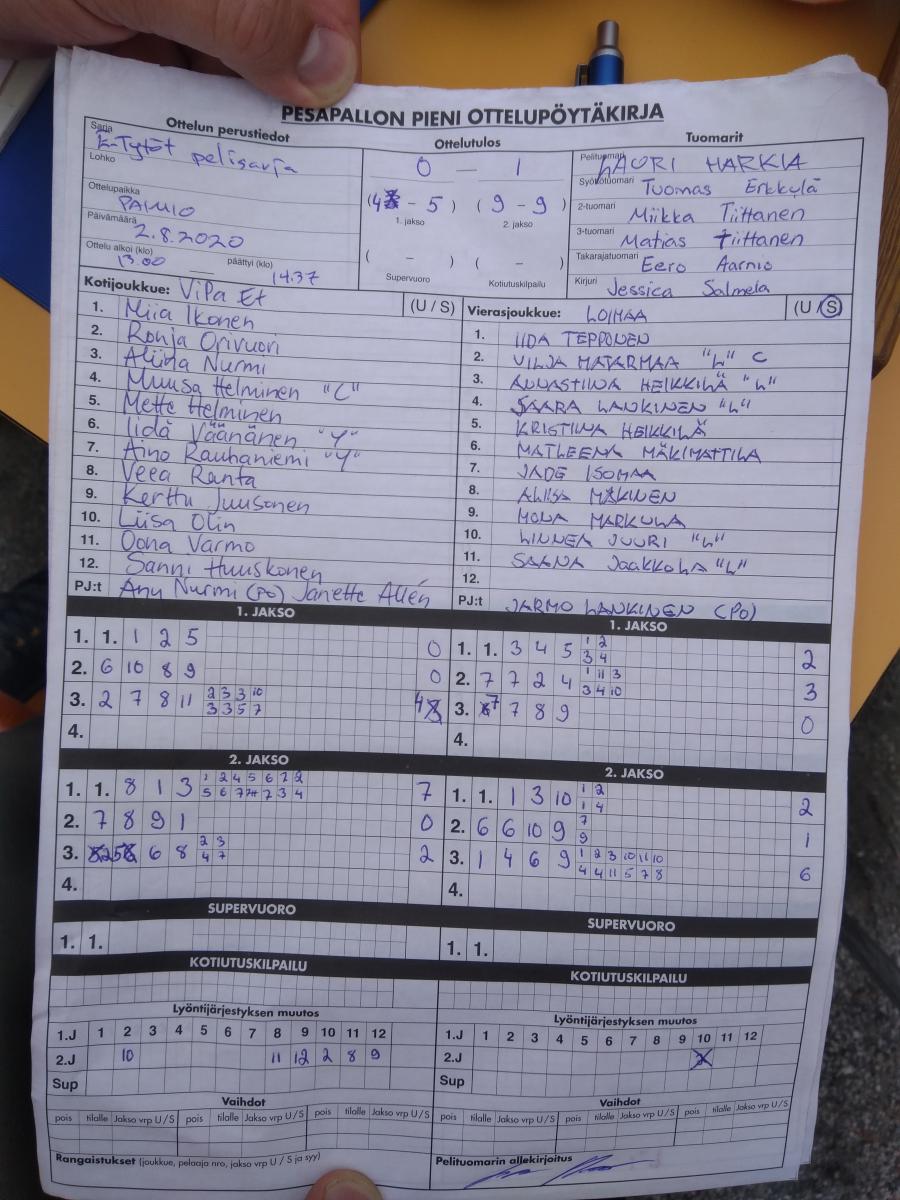 PESÄPALLON PIENI OTTELUPÖYTÄKIRJA
Ottelun perustiedot
Sarja
E-Tytöt pelisarja
Lohko
Ottelupaikka
PAIMIO
Päivämäärä
2.8.2020
Ottelu alkoi (klo) päättyi (klo)
13.00 — 14.37
Ottelutulos
0 — 1
(4 - 5) (9 - 9)
1. jakso 2. jakso
( - ) ( - )
Supervuoro Kotiutuskilpailu
Tuomarit
Pelituomari LAURI HARKIA
Syöttötuomari Tuomas Erkkylä
2-tuomari Miikka Tiittanen
3-tuomari Matias Tiittanen
Takarajatuomari Eero Aarnio
Kirjuri Jessica Salmela
Kotijoukkue: ViPa Et (U / S)
1. Miia Ikonen
2. Ronja Orivuori
3. Aliina Nurmi
4. Muusa Helminen "C"
5. Mette Helminen
6. Iida Väänänen "Y"
7. Aino Rauhaniemi "Y"
8. Veea Ranta
9. Kerttu Juusonen
10. Liisa Olin
11. Oona Varmo
12. Sanni Huuskonen
PJ:t Anu Nurmi (PO) Janette Allén
Vierasjoukkue: LOIMAA (U / S)
1. IIDA TEPPONEN
2. VILJA MATARMAA "L" C
3. ANNASTIINA HEIKKILÄ "L"
4. SAARA LANKINEN "L"
5. KRISTIINA HEIKKILÄ
6. MATLEENA MÄKIMATTILA
7. JADE ISOMAA
8. ALIISA MÄKINEN
9. MONA MARKULA
10. LINNEA JUURI "L"
11. SAANA JAAKKOLA "L"
12.
PJ:t JARMO LANKINEN (PO)
1. JAKSO
1. 1. 1 2 5 0
2. 6 10 8 9 0
3. 2 7 8 11 2 3 3 10 4
3 3 5 7
4.
1. JAKSO
1. 1. 3 4 5 1 2 2
3 4
2. 7 7 2 4 1 11 3 3
3 4 10
3. 7 7 8 9 0
4.
2. JAKSO
1. 1. 8 1 3 1 2 4 5 6 7 2 7
5 6 7 7 3 4
2. 7 8 9 1 0
3. 5 6 8 2 3 2
4 7
4.
2. JAKSO
1. 1. 1 3 10 1 2 2
1 4
2. 6 6 10 9 7 1
9
3. 1 4 6 9 1 2 3 10 11 10 6
4 4 11 5 7 8
4.
SUPERVUORO
1. 1.
SUPERVUORO
1. 1.
KOTIUTUSKILPAILU
KOTIUTUSKILPAILU
Lyöntijärjestyksen muutos
1.J 1 2 3 4 5 6 7 8 9 10 11 12
2.J 10 11 12 2 8 9
Sup
Lyöntijärjestyksen muutos
1.J 1 2 3 4 5 6 7 8 9 10 11 12
2.J
Sup
Vaihdot
pois tilalle Jakso vrp U/S pois tilalle Jakso vrp U/S pois tilalle Jakso vrp U/S
Vaihdot
pois tilalle Jakso vrp U/S pois tilalle Jakso vrp U/S pois tilalle Jakso vrp U/S
Rangaistukset (joukkue, pelaaja nro, jakso vrp U / S ja syy)
Pelituomarin allekirjoitus